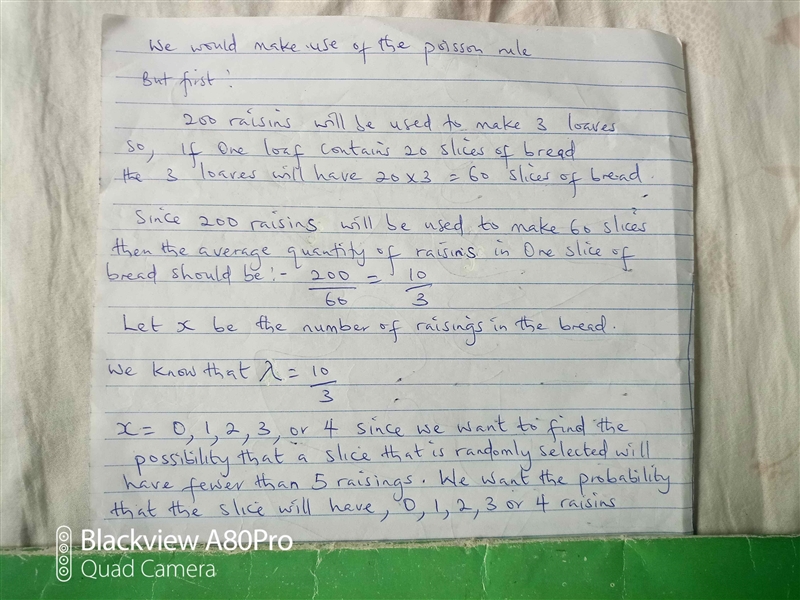 We would make use of the poisson rule
But first!
200 raisins will be used to make 3 loaves
so, If One loaf contains 20 slices of bread
the 3 loaves will have 20 x 3 = 60 slices of bread.
Since 200 raisins will be used to make 60 slices
then the average quantity of raisins in One slice of
bread should be :- 200/60 = 10/3
Let x be the number of raisings in the bread.
We know that λ = 10/3
x = 0, 1, 2, 3, or 4 since we want to find the
possibility that a slice that is randomly selected will
have fewer than 5 raisings. We want the probability
that the slice will have, 0, 1, 2, 3 or 4 raisins
Blackview A80Pro
Quad Camera